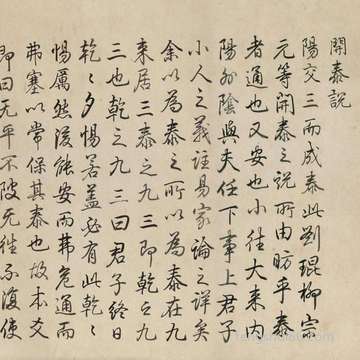 開泰說
陽交三而成泰此劉琨柳宗
元等開泰之說所由昉乎泰
者通也又安也小往大來內
陽外陰與夫任下事上君子
小人之義註易家論之詳矣
余以為泰之所以為泰在九
來居三泰之九三即乾之九
三也乾之九三曰君子終日
乾〻夕惕若蓋必有此乾〻
惕厲然後能安而弗危通而
弗塞以常保其泰也故本爻
即曰无平不陂无往不復使